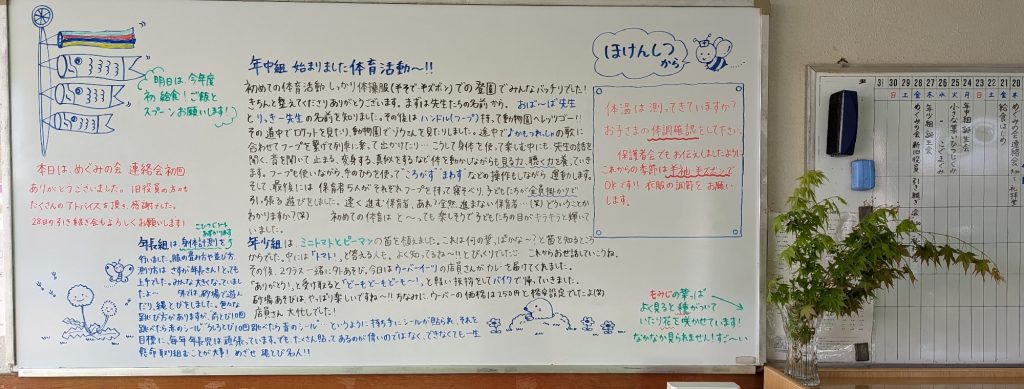 明日は、今年度
初給食！ご飯と
スプーンお願いします！
本日は、めぐみの会 連絡会初回
ありがとうございました。旧役員の方も
たくさんのアドバイスを頂き、感謝でした。
28日の引き続き会もよろしくお願いします！
年中組 始まりました体育活動〜!!
初めての体育活動しっかり体操服(半そで・半ズボン)での登園でみんなバッチリでした！
きちんと整えてくださりありがとうございます。まずは先生たちの名前から。おばーば先生
とりっきー先生の名前を知りました。その後はハンドル(フープ)持って動物園へレッツゴー!!
その道中でロケットを見たり、動物園でゾウさんを見たりしました。途中で♪かもつれっしゃの歌に
合わせてフープを繋げて列車に乗って出かけたり…こうして身体を使って楽しむ中にも、先生の話を
聞く、音を聞いて止まる、変身する、真似をするなど体を動かしながらも見る力、聴く力を養っていき
ます。フープも使いながら、手のひらを使って"ころがす""まわす"などの操作もしながら運動します。
そして、最後には保育者
初めての体育は と〜っても楽しそうで子どもたちの目がキラキラと輝いて
いました。
ほけんしつ
から
体温は測ってきていますか？
お子さまの体調確認をして下さい。
保護者会でもお伝えしましたように
これからの季節は半袖、半ズボンで
OKです!! 衣服の調節をお願い
します。
年長組は、身体計測を
行いました。服の畳み方や並び方、
測り方はさすが年長さん！とても
上手でした。みんな大きくなっていまし
たよ〜 外では、砂場で遊ん
だり、縄とびをしました。色々な
跳び方がありますが、前とび10回
跳べたら赤のシール うしろとび10回跳べたら青のシール…というように持ち手にシールが貼られ、それを
目標に、毎年年長児は頑張っています。でも、たくさん貼ってあるのが偉いのではなく、できなくても一生
懸命取り組むことが大事！めざせ 縄とび名人!!
年少組は、ミニトマトとピーマンの苗を植えました。これは何の葉っぱかな〜？と苗を知るところ
からでした。中には「トマト！」と答える人も。よく知ってるね〜!!とびっくりでした これからお世話していこうね。
その後、2クラス一緒に外あそび。今日はウーバーイーツの店員さんがカレーを届けてくれました。
「ありがとう！」と受け取ると「どーもどーもどーもー！」と軽い挨拶をしてバイクで帰っていきました。
砂場あそびは、やっぱり楽しいですね〜!! ちなみに、ウーバーの価格は250円と格安設定でしたよ(笑)
店員さん 大忙しでした！
もみじの葉っぱ
よく見ると種がついて
いたり花を咲かせています！
なかなか見られません！すご〜い
31 30 29 28 27 26 25 24 23 22 21 20
給食はじめ
年中組 誕生会
年少組 誕生会